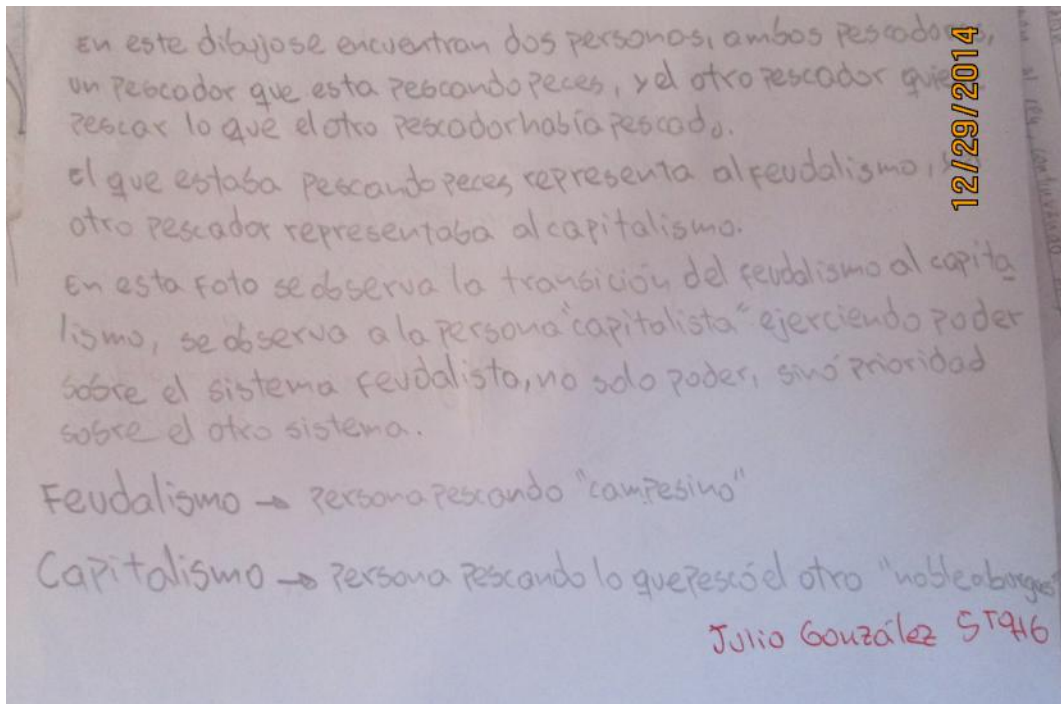 En este dibujo se encuentran dos personas, ambos pescadores,
un pescador que esta pescando peces, y el otro pescador quiere
pescar lo que el otro pescador había pescado.
el que estaba pescando peces representa al feudalismo, y
otro pescador representaba al capitalismo.
En esta foto se observa la transición del feudalismo al capita
lismo, se observa a la persona "capitalista" ejerciendo poder
sobre el sistema feudalista, no solo poder, sinó prioridad
sobre el otro sistema.
Feudalismo → persona pescando "campesino"
Capitalismo → persona pescando lo que pescó el otro "noble o burgues"
Julio González
12/29/2014